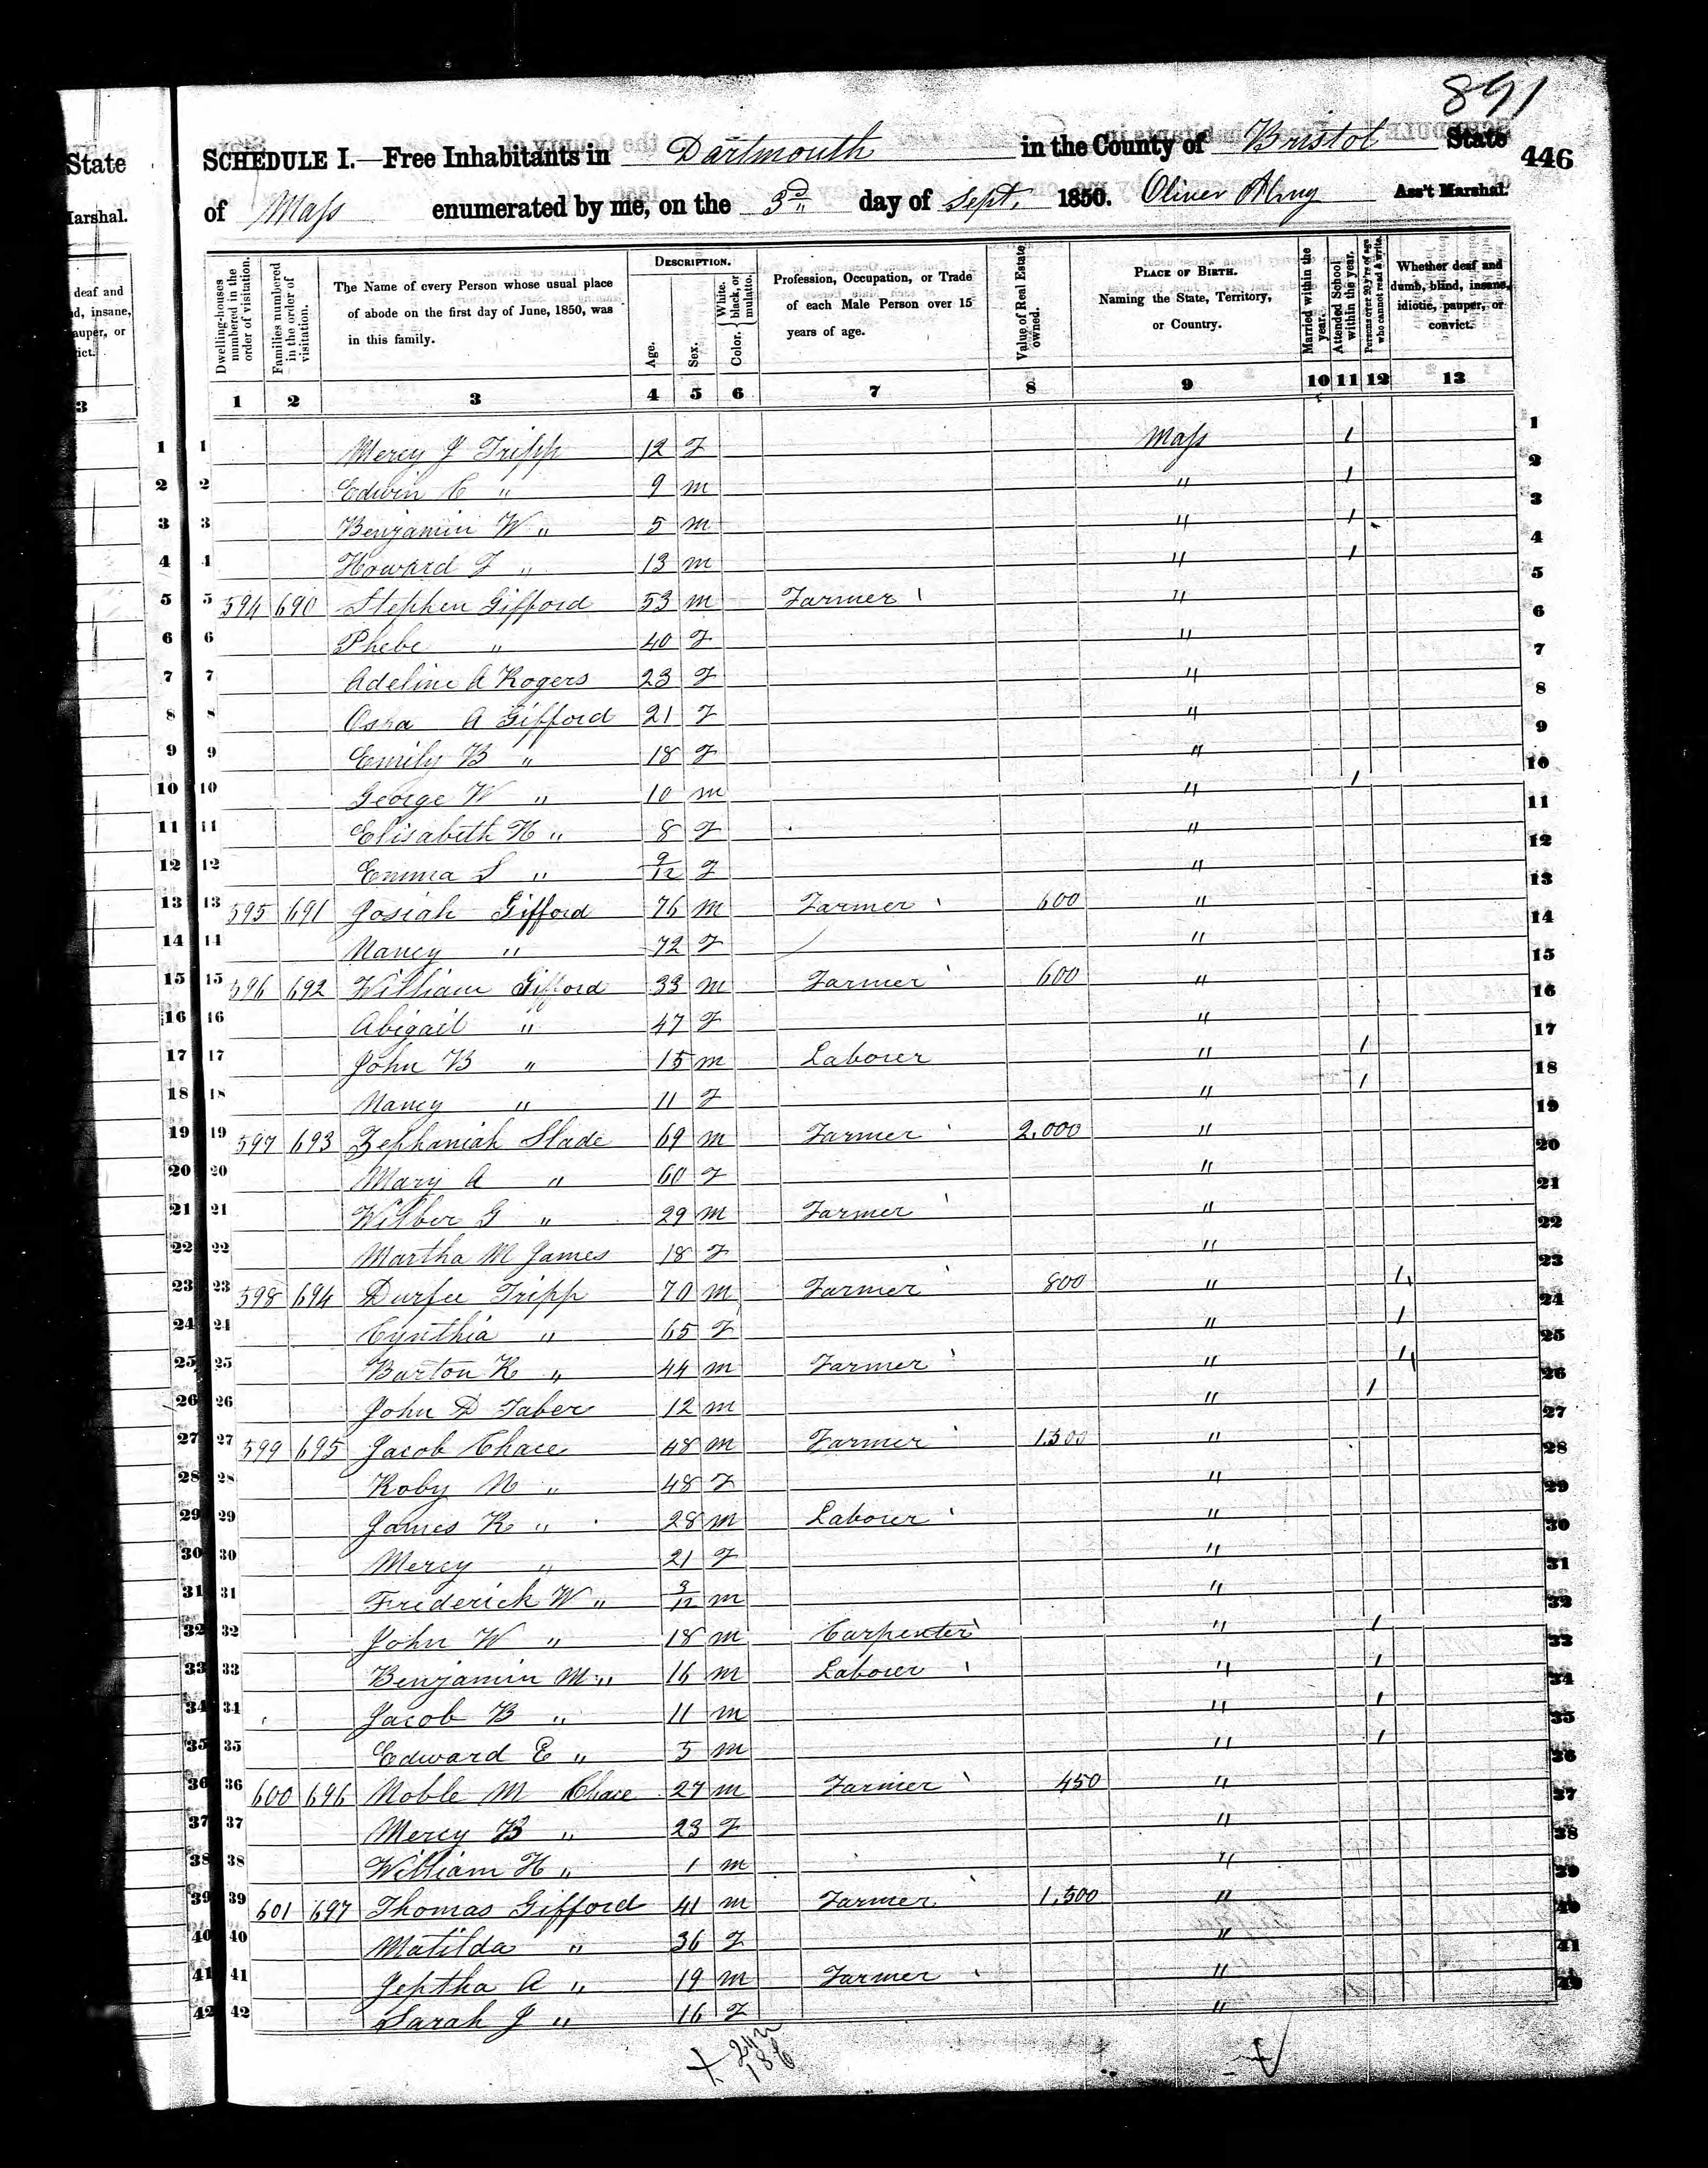 891
SCHEDULE I.—Free Inhabitants in Dartmouth in the County of Bristol State 446
of Mass enumerated by me, on the 3d day of Sept. 1850. Oliver Almy Ass't Marshal.
Dwelling-houses numbered in the order of visitation. Families numbered in the order of visitation. The Name of every Person whose usual place of abode on the first day of June, 1850, was in this family. DESCRIPTION. Age. Sex. Color. { White, black, or mulatto. Profession, Occupation, or Trade of each Male Person over 15 years of age. Value of Real Estate owned. PLACE OF BIRTH. Naming the State, Territory, or Country. Married within the year. Attended School within the year. Persons over 20 y'rs of age who cannot read & write. Whether deaf and dumb, blind, insane, idiotic, pauper, or convict.
1 2 3 4 5 6 7 8 9 10 11 12 13
1 1 Mercy J Tripp 12 F Mass 1 1
2 2 Edwin C " 9 m " 1 2
3 3 Benjamin W " 5 m " 1 3
4 4 Howard F " 13 m " 1 4
5 5 594 690 Stephen Gifford 53 m Farmer " 5
6 6 Phebe " 40 F " 6
7 7 Adeline A Rogers 23 F " 7
8 8 A Gifford 21 F " 8
9 9 Emily B " 18 F " 9
10 10 George W " 10 m " 1 10
11 11 Elisabeth H " 8 F " 11
12 12 Emma S " 9/12 F " 12
13 13 595 691 Josiah Gifford 76 m Farmer 600 " 13
14 14 Nancy " 72 F " 14
15 15 596 692 William Gifford 33 m Farmer 600 " 15
16 16 Abigail " 47 F " 16
17 17 John B " 15 m Laborer " 1 17
18 18 Nancy " 11 F " 1 18
19 19 597 693 Zephaniah Slade 69 m Farmer 2,000 " 19
20 20 Mary A " 60 F " 20
21 21 Wilber G " 29 m Farmer " 21
22 22 Martha M James 18 F " 22
23 23 598 694 Durfee Tripp 70 m Farmer 800 " 1 23
24 24 Cynthia " 65 F " 1 24
25 25 Burton K " 44 m Farmer " 1 25
26 26 John D Taber 12 m " 1 26
27 27 599 695 Jacob Chace 48 m Farmer 1,300 " 27
28 28 Roby N " 48 F " 28
29 29 James K " 28 m Laborer " 29
30 30 Mercy " 21 F " 30
31 31 Frederick W " 3/12 m " 31
32 32 John W " 18 m Carpenter " 1 32
33 33 Benjamin M " 16 m Laborer " 1 33
34 34 Jacob B " 11 m " 1 34
35 35 Edward E " 5 m " 1 35
36 36 600 696 Noble M Chace 27 m Farmer 450 " 36
37 37 Mercy B " 23 F " 37
38 38 William H " 1 m " 38
39 39 601 697 Thomas Gifford 41 m Farmer 1,500 " 39
40 40 Matilda " 36 F " 40
41 41 Jeptha A " 19 m Farmer " 41
42 42 Sarah J " 16 F " 42